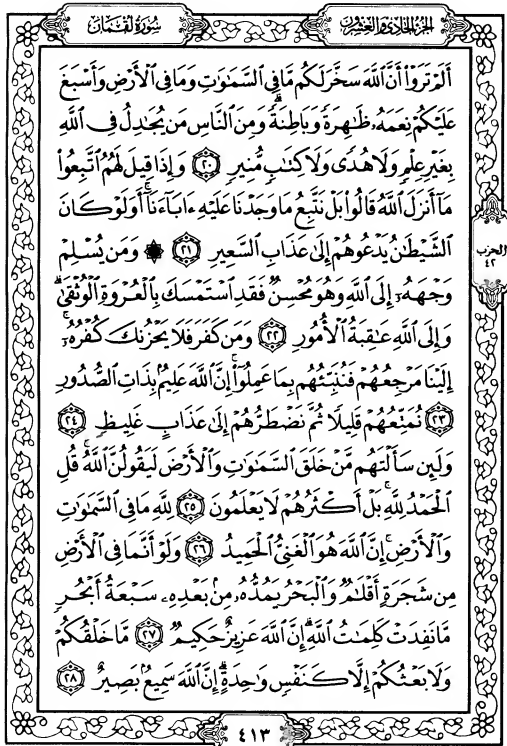 الجزء الحادي والعشرون
سورة لقمان
أَلَمْ تَرَوْا۟ أَنَّ ٱللَّهَ سَخَّرَ لَكُم مَّا فِى ٱلسَّمَٰوَٰتِ وَمَا فِى ٱلْأَرْضِ وَأَسْبَغَ
عَلَيْكُمْ نِعَمَهُۥ ظَٰهِرَةً وَبَاطِنَةً ۗ وَمِنَ ٱلنَّاسِ مَن يُجَٰدِلُ فِى ٱللَّهِ
بِغَيْرِ عِلْمٍ وَلَا هُدًى وَلَا كِتَٰبٍ مُّنِيرٍ ٢٠ وَإِذَا قِيلَ لَهُمُ ٱتَّبِعُوا۟
مَآ أَنزَلَ ٱللَّهُ قَالُوا۟ بَلْ نَتَّبِعُ مَا وَجَدْنَا عَلَيْهِ ءَابَآءَنَآ ۚ أَوَلَوْ كَانَ
ٱلشَّيْطَٰنُ يَدْعُوهُمْ إِلَىٰ عَذَابِ ٱلسَّعِيرِ ٢١ ۞ وَمَن يُسْلِمْ
الحزب
٤٢
وَجْهَهُۥٓ إِلَى ٱللَّهِ وَهُوَ مُحْسِنٌ فَقَدِ ٱسْتَمْسَكَ بِٱلْعُرْوَةِ ٱلْوُثْقَىٰ ۗ
وَإِلَى ٱللَّهِ عَٰقِبَةُ ٱلْأُمُورِ ٢٢ وَمَن كَفَرَ فَلَا يَحْزُنكَ كُفْرُهُۥٓ ۚ
إِلَيْنَا مَرْجِعُهُمْ فَنُنَبِّئُهُم بِمَا عَمِلُوٓا۟ ۚ إِنَّ ٱللَّهَ عَلِيمٌۢ بِذَاتِ ٱلصُّدُورِ
٢٣ نُمَتِّعُهُمْ قَلِيلًا ثُمَّ نَضْطَرُّهُمْ إِلَىٰ عَذَابٍ غَلِيظٍ ٢٤
وَلَئِن سَأَلْتَهُم مَّنْ خَلَقَ ٱلسَّمَٰوَٰتِ وَٱلْأَرْضَ لَيَقُولُنَّ ٱللَّهُ ۚ قُلِ
ٱلْحَمْدُ لِلَّهِ ۚ بَلْ أَكْثَرُهُمْ لَا يَعْلَمُونَ ٢٥ لِلَّهِ مَا فِى ٱلسَّمَٰوَٰتِ
وَٱلْأَرْضِ ۚ إِنَّ ٱللَّهَ هُوَ ٱلْغَنِىُّ ٱلْحَمِيدُ ٢٦ وَلَوْ أَنَّمَا فِى ٱلْأَرْضِ
مِن شَجَرَةٍ أَقْلَٰمٌ وَٱلْبَحْرُ يَمُدُّهُۥ مِنۢ بَعْدِهِۦ سَبْعَةُ أَبْحُرٍ
مَّا نَفِدَتْ كَلِمَٰتُ ٱللَّهِ ۗ إِنَّ ٱللَّهَ عَزِيزٌ حَكِيمٌ ٢٧ مَّا خَلْقُكُمْ
وَلَا بَعْثُكُمْ إِلَّا كَنَفْسٍ وَٰحِدَةٍ ۗ إِنَّ ٱللَّهَ سَمِيعٌۢ بَصِيرٌ ٢٨
٤١٣